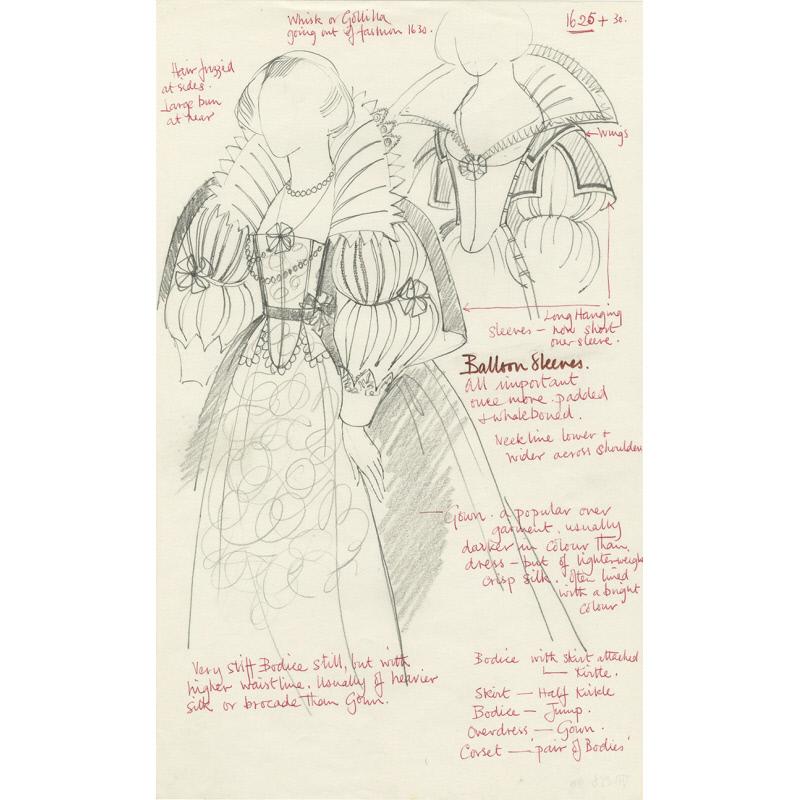 Whisk or Gollilla
going out of fashion 1630.
1625 + 30.
Hair frizzed
at sides.
Large bun
at rear
Wings
Long Hanging
sleeves - now short
over sleeve.
Balloon Sleeves.
All important
once more. padded
+ whaleboned.
Neckline lower +
wider across shoulder
Gown. a popular over
garment. usually
darker in colour than
dress - but of lighterweight
crisp silk. Often lined
with a bright
colour
Very stiff Bodice still, but with
higher waistline. Usually of heavier
silk or brocade than Gown.
Bodice with skirt attached
Kirtle.
Skirt - Half Kirtle
Bodice - Jump.
Overdress - Gown.
Corset - 'pair of Bodies'